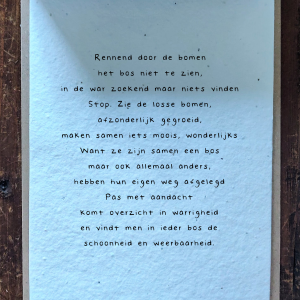 Rennend door de bomen
het bos niet te zien,
in de war zoekend maar niets vinden
Stop. Zie de losse bomen,
afzonderlijk gegroeid,
maken samen iets moois, wonderlijks
Want ze zijn samen een bos
maar ook allemaal anders,
hebben hun eigen weg afgelegd
Pas met aandacht
komt overzicht in warrigheid
en vindt men in ieder bos de
schoonheid en weerbaarheid.